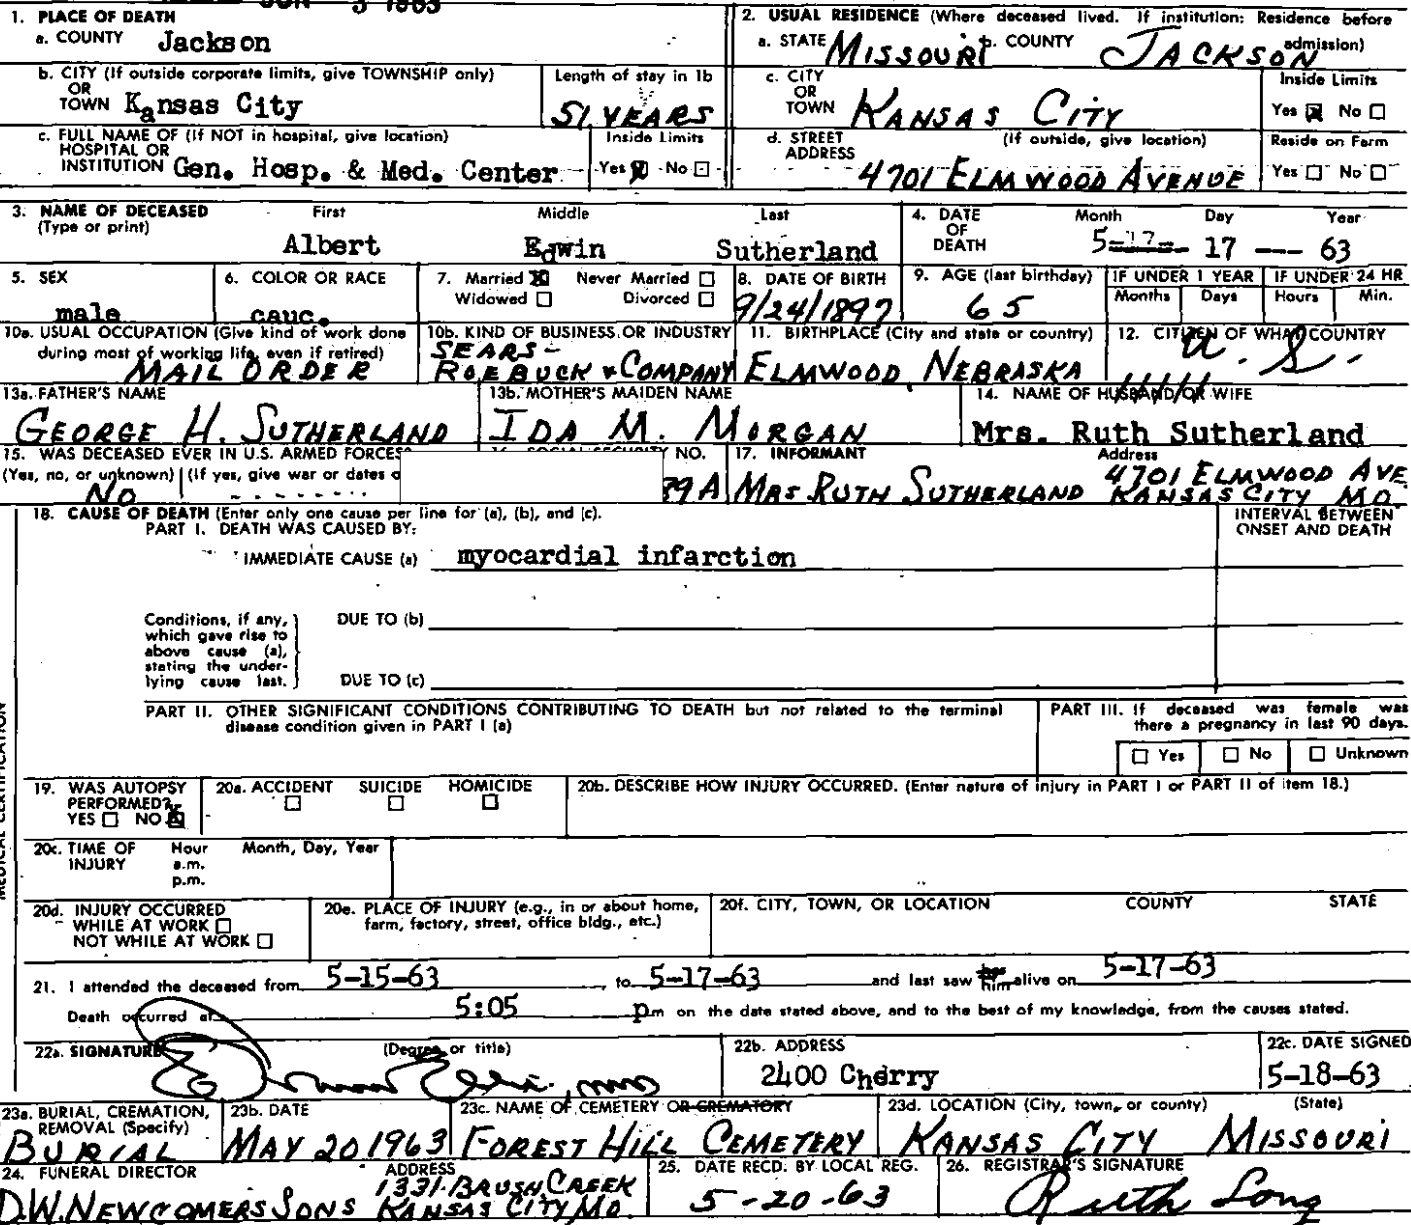 JUN 3 1963
1. PLACE OF DEATH
a. COUNTY Jackson
2. USUAL RESIDENCE (Where deceased lived. If institution: Residence before admission)
a. STATE MISSOURI b. COUNTY JACKSON
b. CITY (If outside corporate limits, give TOWNSHIP only) OR TOWN Kansas City
Length of stay in 1b 51 YEARS
c. CITY OR TOWN KANSAS CITY
Inside Limits Yes ☒ No ☐
c. FULL NAME OF (If NOT in hospital, give location) HOSPITAL OR INSTITUTION Gen. Hosp. & Med. Center
Inside Limits Yes ☒ No ☐
d. STREET ADDRESS (If outside, give location) 4701 ELMWOOD AVENUE
Reside on Farm Yes ☐ No ☐
3. NAME OF DECEASED (Type or print) First Middle Last
Albert Edwin Sutherland
4. DATE OF DEATH Month Day Year
5-17- 17 --- 63
5. SEX male
6. COLOR OR RACE cauc.
7. Married ☒ Never Married ☐
Widowed ☐ Divorced ☐
8. DATE OF BIRTH 9/24/1897
9. AGE (last birthday) 65
IF UNDER 1 YEAR Months Days
IF UNDER 24 HR Hours Min.
10a. USUAL OCCUPATION (Give kind of work done during most of working life, even if retired) MAIL ORDER
10b. KIND OF BUSINESS OR INDUSTRY SEARS- ROEBUCK & COMPANY
11. BIRTHPLACE (City and state or country) ELMWOOD, NEBRASKA
12. CITIZEN OF WHAT COUNTRY U. S.
13a. FATHER'S NAME GEORGE H. SUTHERLAND
13b. MOTHER'S MAIDEN NAME IDA M. MORGAN
14. NAME OF HUSBAND/OR WIFE Mrs. Ruth Sutherland
15. WAS DECEASED EVER IN U.S. ARMED FORCES?
(Yes, no, or unknown) (If yes, give war or dates o
No
16. SOCIAL SECURITY NO. 79A
17. INFORMANT Address
MRS RUTH SUTHERLAND 4701 ELMWOOD AVE KANSAS CITY MO
18. CAUSE OF DEATH (Enter only one cause per line for (a), (b), and (c).
PART I. DEATH WAS CAUSED BY:
INTERVAL BETWEEN ONSET AND DEATH
IMMEDIATE CAUSE (a) myocardial infarction
Conditions, if any, which gave rise to above cause (a), stating the underlying cause last.
DUE TO (b)
DUE TO (c)
PART II. OTHER SIGNIFICANT CONDITIONS CONTRIBUTING TO DEATH but not related to the terminal disease condition given in PART I (a)
PART III. If deceased was female was there a pregnancy in last 90 days.
☐ Yes ☐ No ☐ Unknown
MEDICAL CERTIFICATION
19. WAS AUTOPSY PERFORMED? YES ☐ NO ☒
20a. ACCIDENT ☐ SUICIDE ☐ HOMICIDE ☐
20b. DESCRIBE HOW INJURY OCCURRED. (Enter nature of injury in PART I or PART II of item 18.)
20c. TIME OF INJURY Hour a.m. p.m. Month, Day, Year
20d. INJURY OCCURRED
WHILE AT WORK ☐
NOT WHILE AT WORK ☐
20e. PLACE OF INJURY (e.g., in or about home, farm, factory, street, office bldg., etc.)
20f. CITY, TOWN, OR LOCATION COUNTY STATE
21. I attended the deceased from 5-15-63 to 5-17-63 and last saw her him alive on 5-17-63
Death occurred at 5:05 pm on the date stated above, and to the best of my knowledge, from the causes stated.
22a. SIGNATURE (Degree or title) MD
22b. ADDRESS 2400 Cherry
22c. DATE SIGNED 5-18-63
23a. BURIAL, CREMATION, REMOVAL (Specify) BURIAL
23b. DATE MAY 20 1963
23c. NAME OF CEMETERY OR CREMATORY FOREST HILL CEMETERY
23d. LOCATION (City, town, or county) (State) KANSAS CITY MISSOURI
24. FUNERAL DIRECTOR ADDRESS
D.W. NEWCOMERS SONS 1331 BRUSH CREEK KANSAS CITY MO.
25. DATE RECD. BY LOCAL REG. 5-20-63
26. REGISTRAR'S SIGNATURE Ruth Long